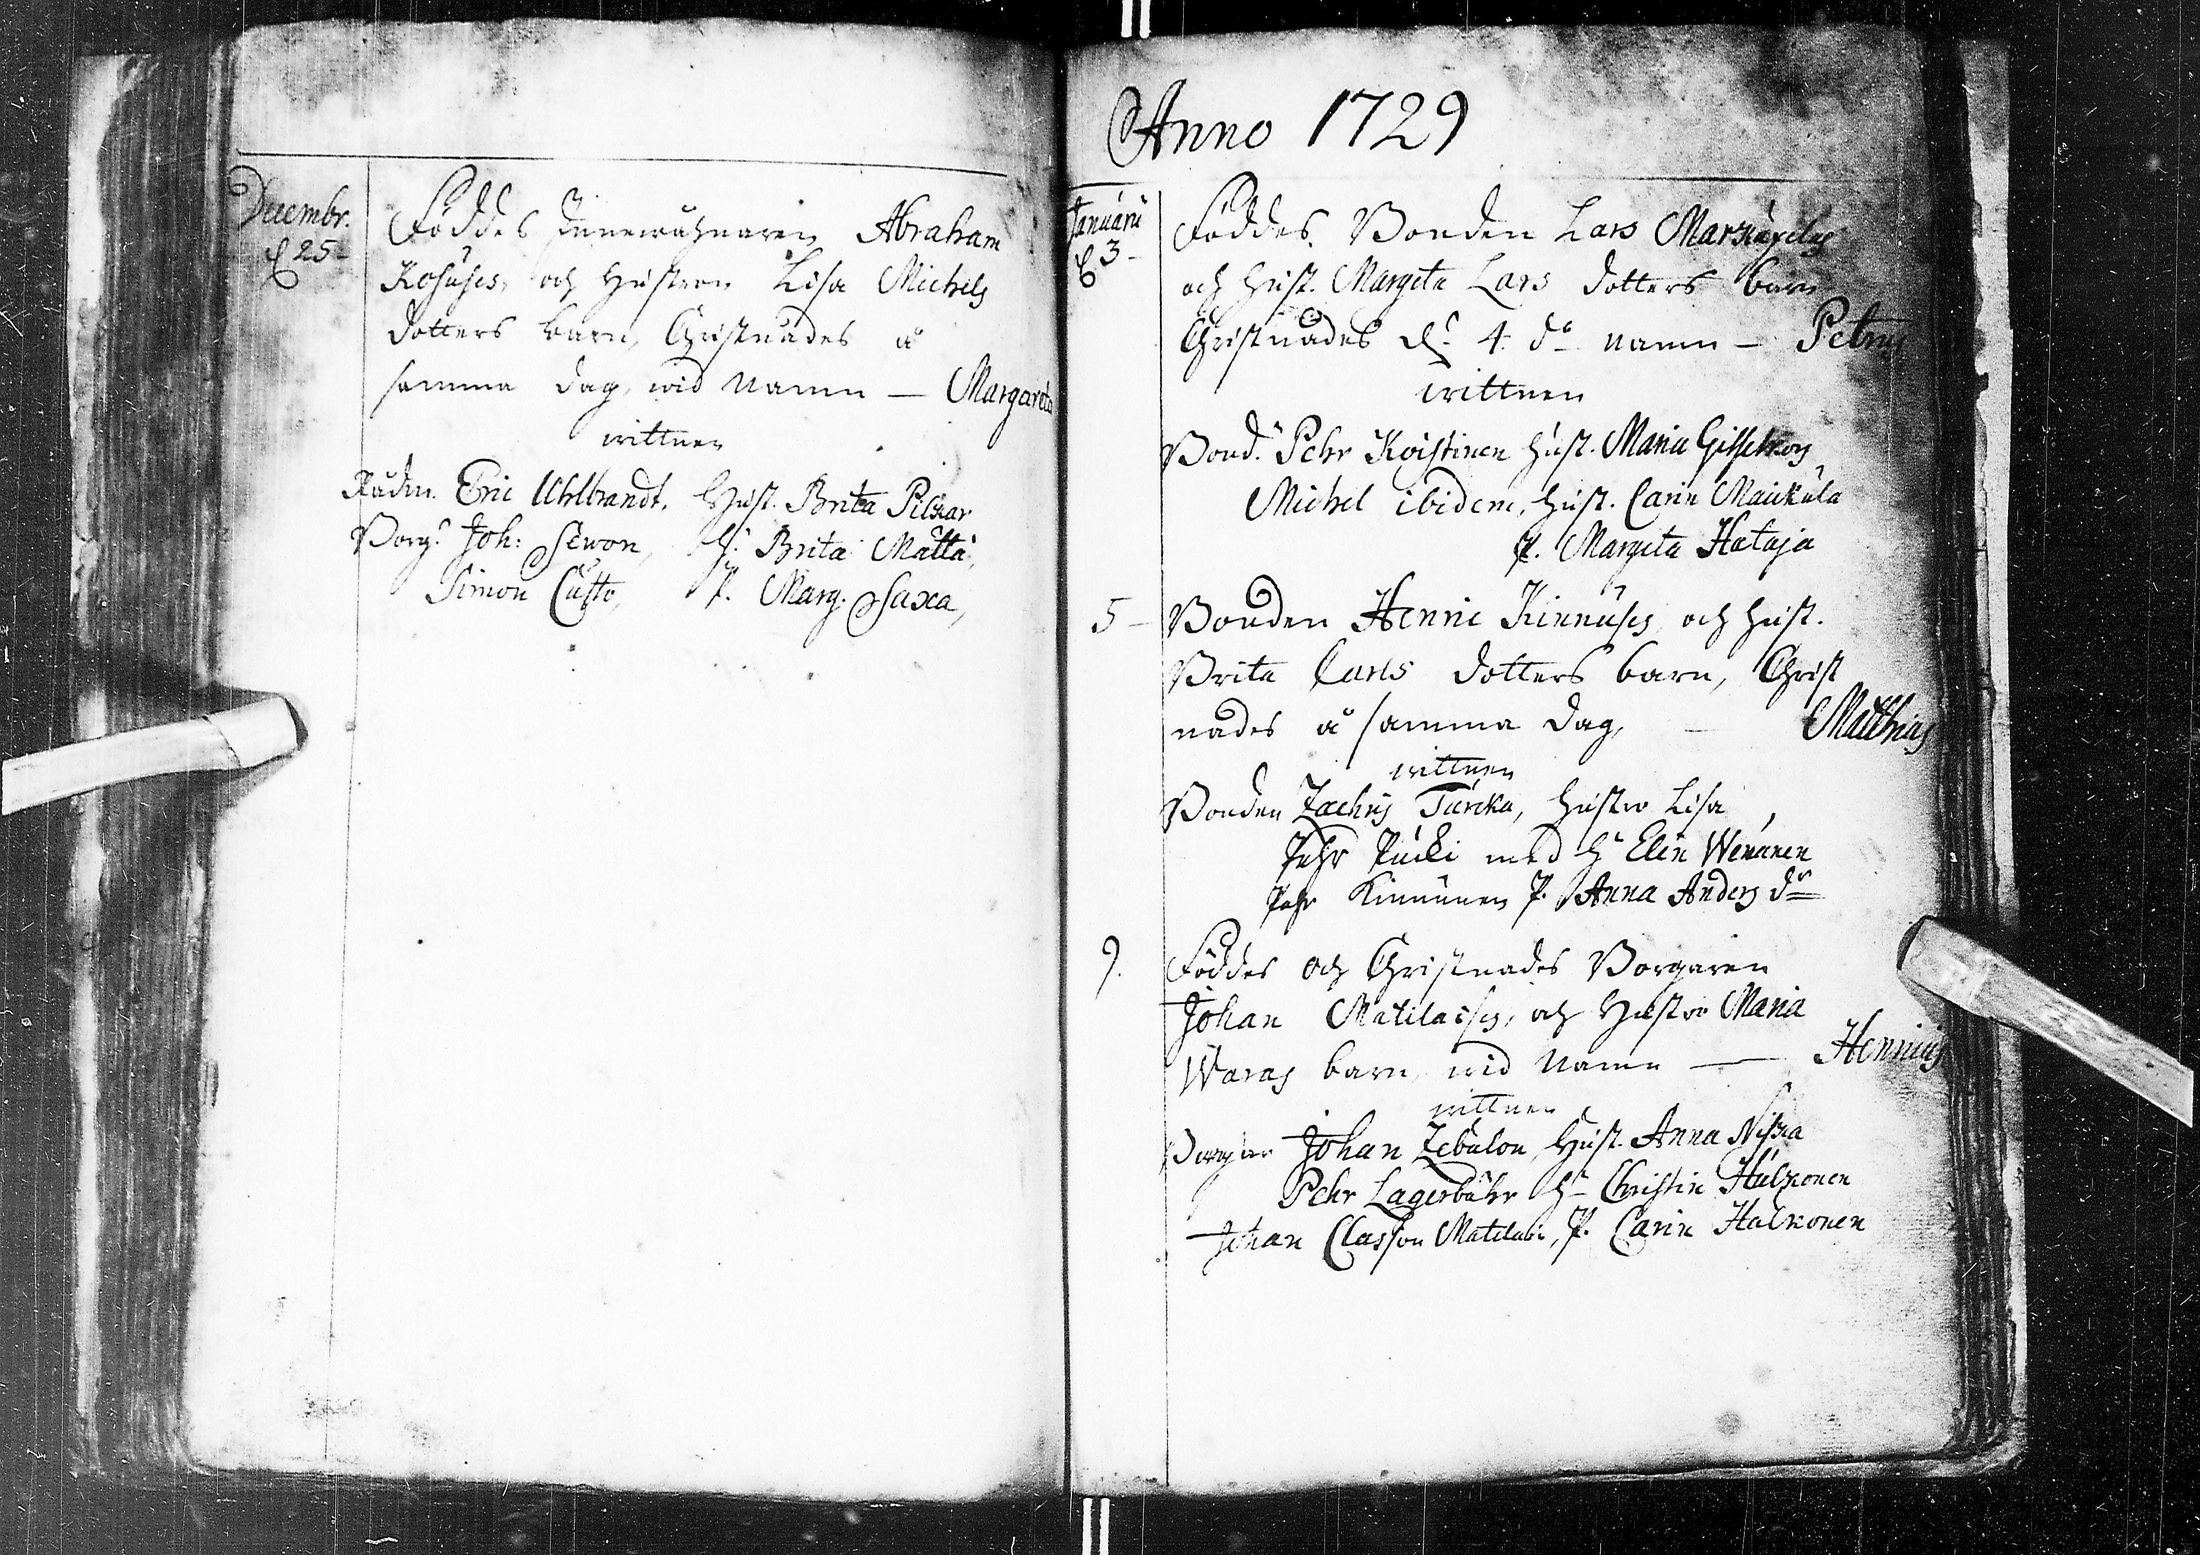 Decembr.
d 25
Föddes Innewåhnaren Abraham
Kosuhes, och Hustron Lisa Michels
dotters barn, Christnades å
samma dag, wid namn — Margareta
wittnen
Rådm. Eric Uhlbrandt, Hust. Brita Pilkar
Borg. Joh: Sewon, H. Brita Matta,
Simon Custo, P. Marg. Saxa,
Anno 1729
Januarii
d 3
Föddes Bonden Lars
och Hust. Margeta Lars dotters barn
Christnades d. 4 do namn — Petrus
wittnen
Bond. Pehr Koistinen Hust. Maria
Michel ibidem, Hust. Carin Maickula
P. Margeta Hataja
5 — Bonden Henric Kinnuses och Hust.
Brita Carls dotters barn, Christ
nades å samma dag, — Matthias
wittnen
Bonden Zachris Turcka, Hustro Lisa,
Pehr Pucki med H Elin Wenänen
Pehr Kinnunen P. Anna Anders dr
9. Föddes och Christnades Borgaren
Johan Matilaises, och Hustro Maria
Waras barn, wid namn — Henricus
wittnen
Borgare Johan Zebulon, Hust. Anna Niska
Pehr Lagerbohr H Christin Hulkonen
Johan Classon Matelain, P. Carin Halkonen